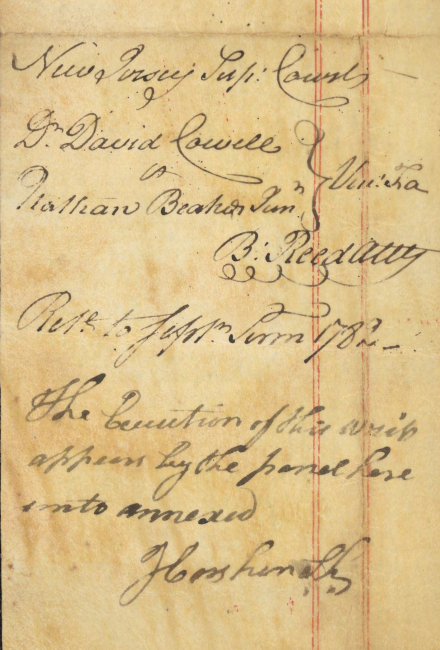 New Jersey Sup: Court
Dr. David Cowell
vs
Nathan Beakes Junr
Ven: Fa
B: Reed Atty
Rete. to Septr. Term 1782
The Execution of this writ
appears by the panel here
unto annexed